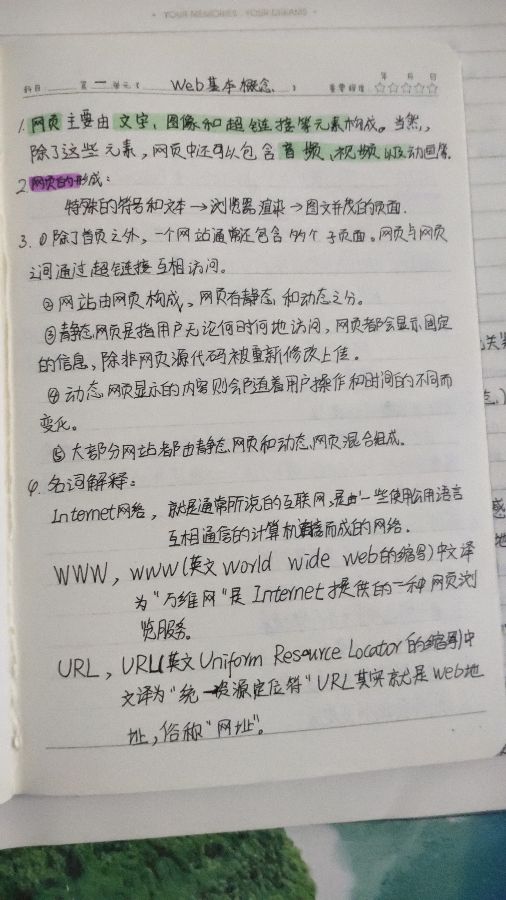 YOUR MEMORIES · YOUR DREAMS
年 月 日
科目: 第 一 单元《 Web基本概念. 》 重要程度: ☆☆☆☆☆
1. 网页主要由文字、图像和超链接等元素构成。当然,
除了这些元素,网页中还可以包含音频、视频以及动画等.
2. 网页的形成:
特殊的符号和文本→浏览器渲染→图文并茂的页面.
3. ①除了首页之外,一个网站通常还包含多个子页面。网页与网页
之间通过超链接互相访问。
②网站由网页构成。网页有静态和动态之分。
③静态网页是指用户无论何时何地访问,网页都会显示固定
的信息,除非网页源代码被重新修改上传。
④动态网页显示的内容则会随着用户操作和时间的不同而
变化。
⑤大部分网站都由静态网页和动态网页混合组成.
4. 名词解释:
Internet网络,就是通常所说的互联网,是由一些使用公用语言
互相通信的计算机连接而成的网络.
WWW,WWW(英文World wide web的缩写)中文译
为"万维网"是Internet提供的一种网页浏
览服务。
URL,URL(英文Uniform Resource Locator的缩写)中
文译为"统一资源定位符"URL其实就是Web地
址,俗称"网址"。